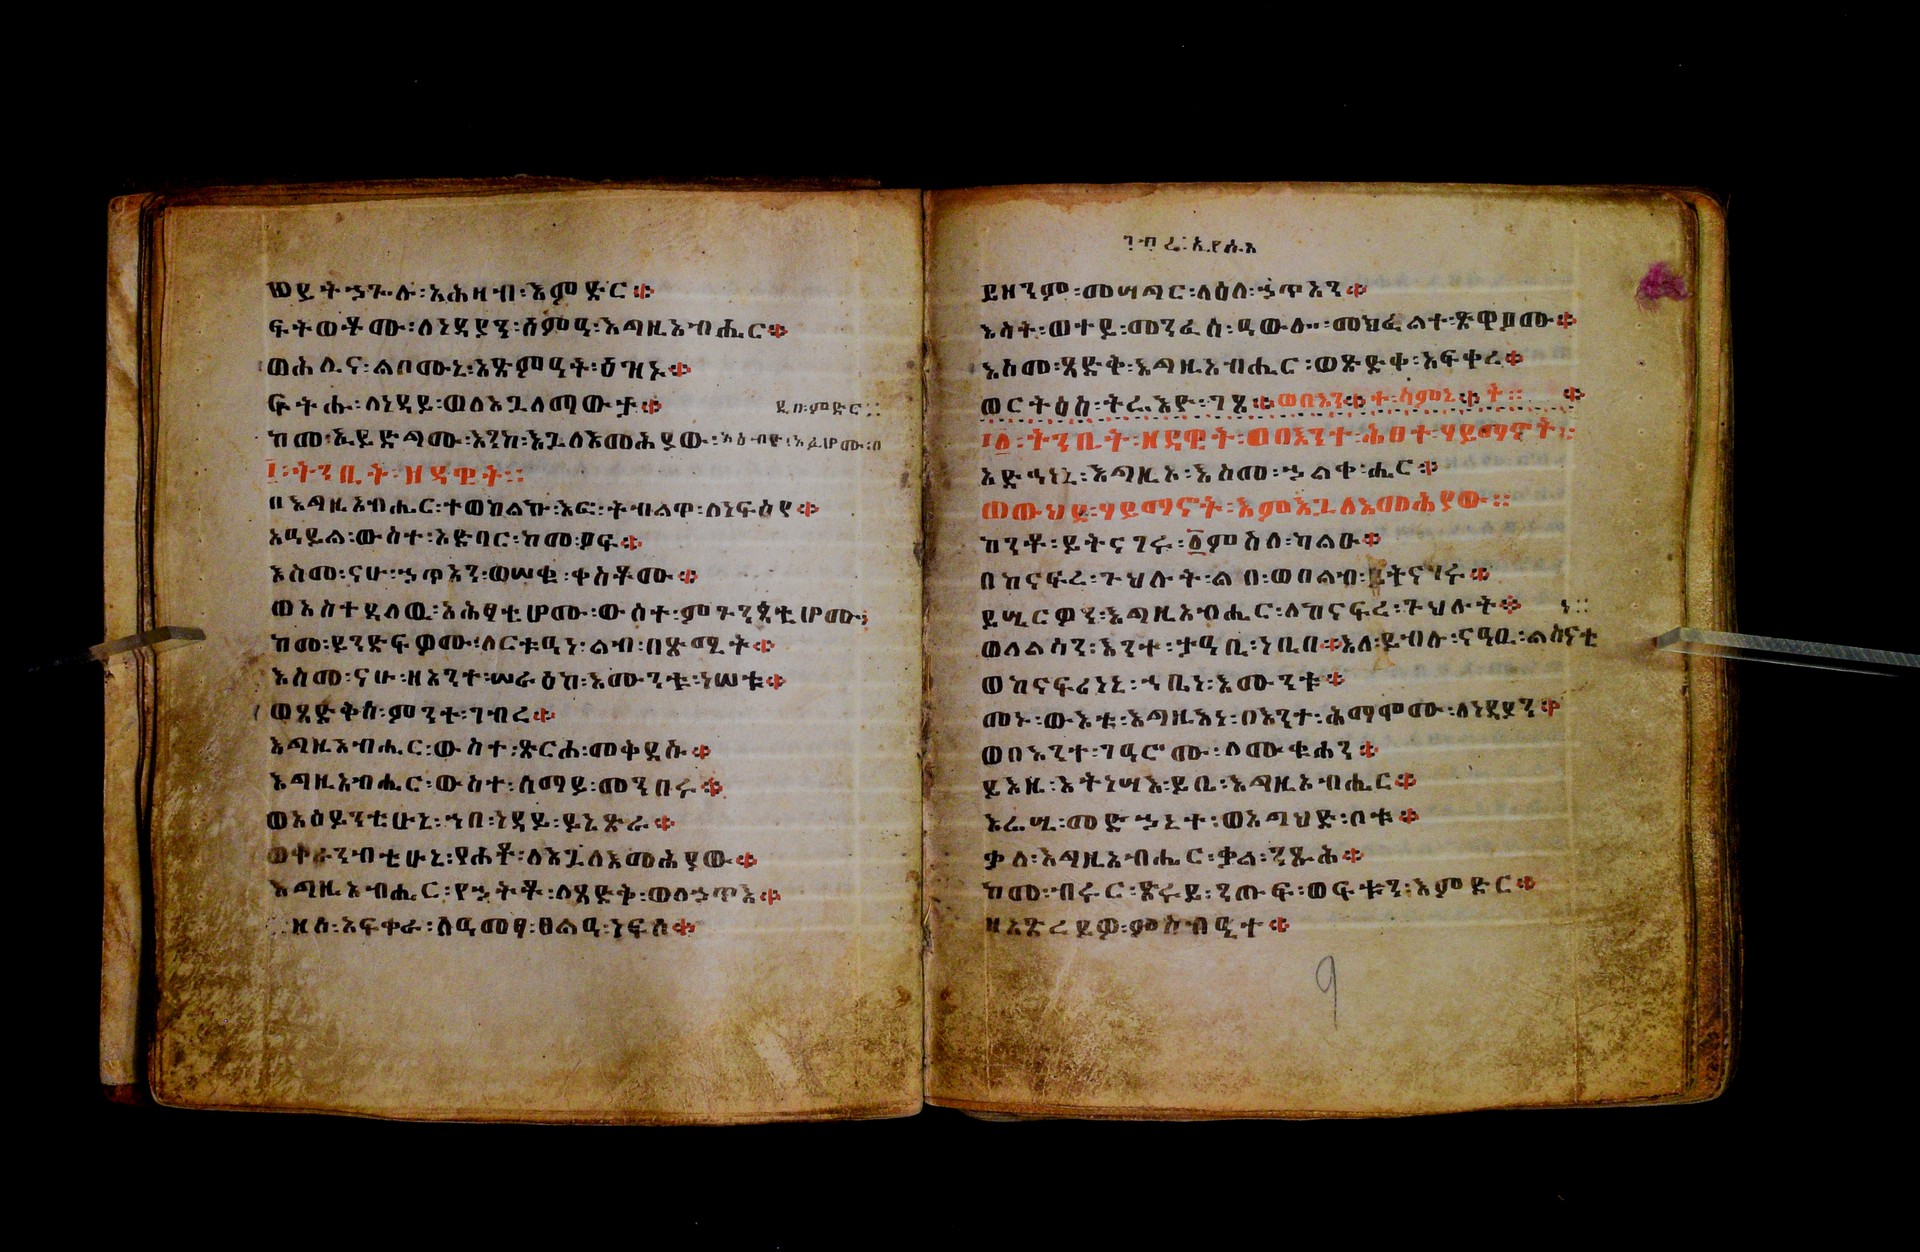 ወይትኃጐሉ፡አሕዛብ፡እምድር።
ፍትወቶሙ፡ለነዳያን፡ሰምዓ፡እግዚአብሔር።
ወሕሊና፡ልቦሙኒ፡አጽምዓት፡ዕዝኑ።
ፍትሑ፡ለነዳይ፡ወለእጓለማውታ። ዲበ፡ምድር።
ከመ፡ኢይድግሙ፡እንከ፡እጓለእመሕያው፡አዕብዮ፡አፈሆሙ፡በ
፲፡ትንቢት፡ዘዳዊት።
በእግዚአብሔር፡ተወከልኩ፡እፎ፡ትብልዋ፡ለነፍስየ።
አዓይል፡ውስተ፡አድባር፡ከመ፡ዖፍ።
እስመ፡ናሁ፡ኃጥአን፡ወሠቁ፡ቀስቶሙ።
ወአስተዳለዉ፡አሕፃቲሆሙ፡ውስተ፡ምጕንጳቲሆሙ፡
ከመ፡ይንድፍዎሙ፡ለርቱዓነ፡ልብ፡በጽሚት።
እስመ፡ናሁ፡ዘአንተ፡ሠራዕከ፡እሙንቱ፡ነሠቱ።
ወጻድቅሰ፡ምንተ፡ገብረ።
እግዚአብሔር፡ውስተ፡ጽርሐ፡መቅደሱ።
እግዚአብሔር፡ውስተ፡ሰማይ፡መንበሩ።
ወአዕይንቲሁኒ፡ኀበ፡ነዳይ፡ይኔጽራ።
ወቀራንብቲሁኒ፡የሐቶ፡ለእጓለእመሕያው።
እግዚአብሔር፡የኃትቶ፡ለጻድቅ፡ወለኃጥእ።
ዘሰ፡አፍቀራ፡ለዓመፃ፡ፀልዓ፡ነፍሰ።
ገብረ፡ኢየሱስ
ይዘንም፡መሣግር፡ለዕለ፡ኃጥአን።
እሳት፡ወተይ፡መንፈሰ፡ዓውሎ፡መክፈልተ፡ጽዋዖሙ።
እስመ፡ጻድቅ፡እግዚአብሔር፡ወጽድቀ፡አፍቀረ።
ወርትዕሰ፡ትሬእዮ፡ገጹ።ወበእንተ፡ሳምኒት።
፲፩፡ትንቢት፡ዘዳዊት፡ወበእንተ፡ሕፀተ፡ሃይማኖት።
አድኅነኒ፡እግዚኦ፡እስመ፡ኃልቀ፡ሔር።
ወውህደ፡ሃይማኖት፡እምእጓለእመሕያው።
ከንቶ፡ይትናገሩ፡፩ምስለ፡ካልዑ።
በከናፍረ፡ጕህሉት፡ልበ፡ወበልብ፡ይትናገሩ።
ይሤርዎን፡እግዚአብሔር፡ለከናፍረ፡ጕህሉት። ነ።
ወለልሳን፡እንተ፡ታዓቢ፡ነቢበ።እለ፡ይብሉ፡ናዓቢ፡ልሳናቲ
ወከናፍሪነኒ፡ኀቤነ፡እሙንቱ።
መኑ፡ውእቱ፡እግዚእነ፡በእንተ፡ሕማሞሙ፡ለነዳያን።
ወበእንተ፡ገዓሮሙ፡ለሙቁሐን።
ይእዜ፡እትነሣእ፡ይቤ፡እግዚአብሔር።
እሬሲ፡መድኃኒተ፡ወእግህድ፡ቦቱ።
ቃለ፡እግዚአብሔር፡ቃል፡ንጹሕ።
ከመ፡ብሩር፡ጽሩይ፡ንጡፍ፡ወፍቱን፡እምድር።
ዘአጽረይዎ፡ምስብዒተ።
9